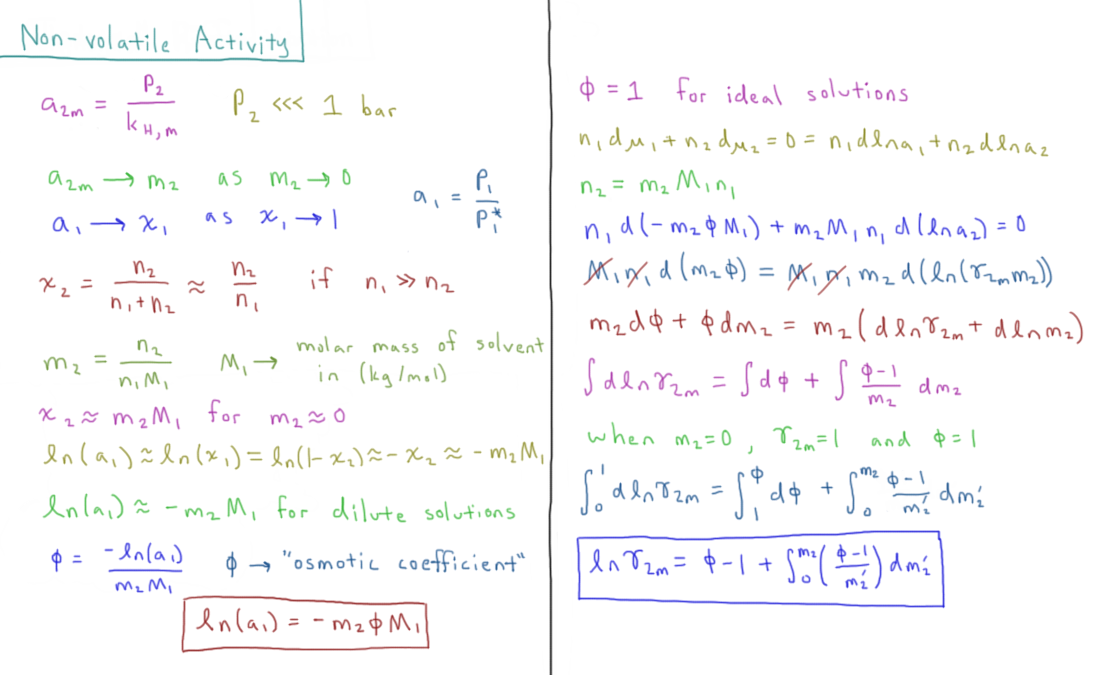 Non-volatile Activity
a₂ₘ = P₂ / k_H,m    P₂ <<< 1 bar
a₂ₘ → m₂ as m₂ → 0
a₁ → x₁ as x₁ → 1    a₁ = P₁ / P₁*
x₂ = n₂ / (n₁ + n₂) ≈ n₂ / n₁ if n₁ >> n₂
m₂ = n₂ / (n₁ M₁)    M₁ → molar mass of solvent
in (kg/mol)
x₂ ≈ m₂M₁ for m₂ ≈ 0
ln(a₁) ≈ ln(x₁) = ln(1-x₂) ≈ -x₂ ≈ -m₂M₁
ln(a₁) ≈ -m₂M₁ for dilute solutions
ϕ = -ln(a₁) / (m₂M₁)    ϕ → "osmotic coefficient"
ln(a₁) = -m₂ϕM₁
ϕ = 1 for ideal solutions
n₁dμ₁ + n₂dμ₂ = 0 = n₁dlna₁ + n₂dlna₂
n₂ = m₂M₁n₁
n₁d(-m₂ϕM₁) + m₂M₁n₁d(lna₂) = 0
M₁n₁d(m₂ϕ) = M₁n₁m₂d(ln(γ₂ₘm₂))
m₂dϕ + ϕdm₂ = m₂(dlnγ₂ₘ + dlnm₂)
∫dlnγ₂ₘ = ∫dϕ + ∫ (ϕ-1)/m₂ dm₂
when m₂=0, γ₂ₘ=1 and ϕ=1
∫₀¹ dlnγ₂ₘ = ∫₁^ϕ dϕ + ∫₀^m₂ (ϕ-1)/m₂′ dm₂′
lnγ₂ₘ = ϕ-1 + ∫₀^m₂ ((ϕ-1)/m₂′) dm₂′